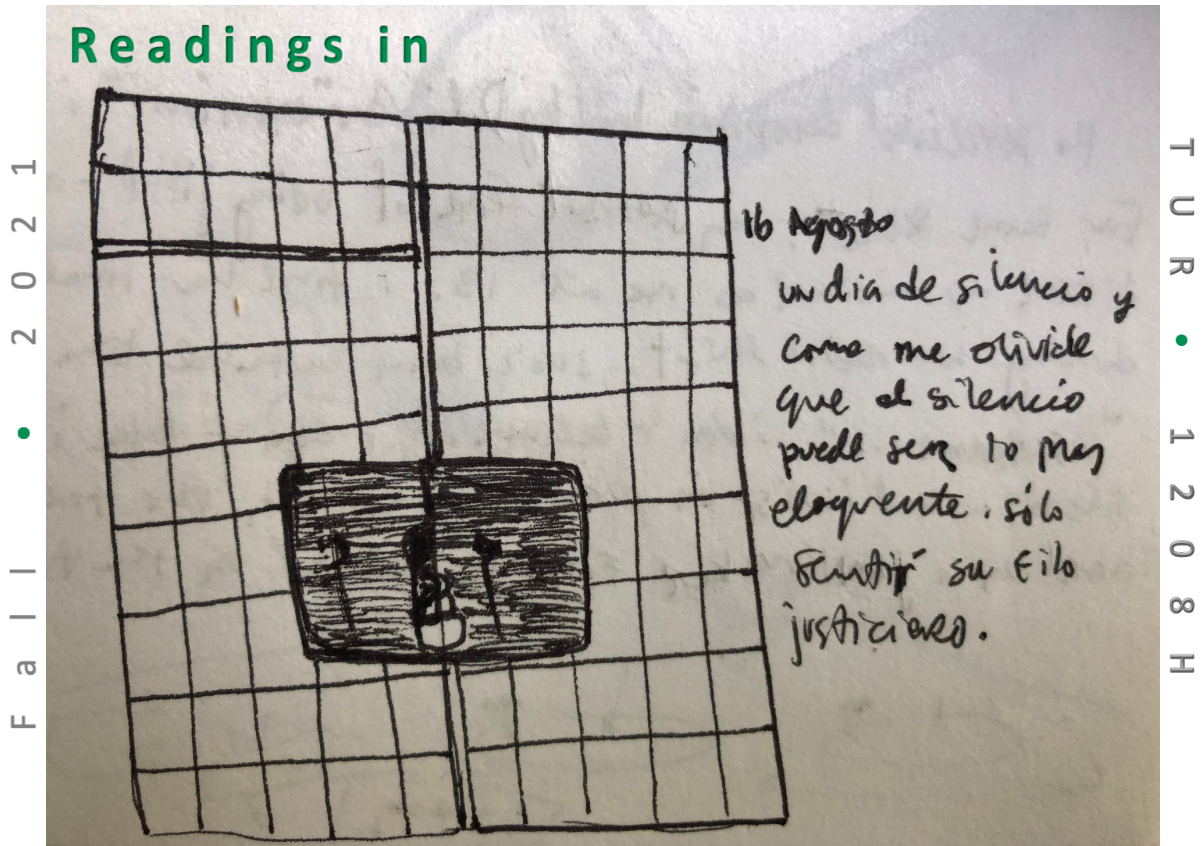 Readings in
Fall • 2021
TUR • 1208H
16 Agosto
un dia de silencio y
como me olivide
que el silencio
puede ser lo mas
eloquente. sólo
sentir su filo
justiciero.